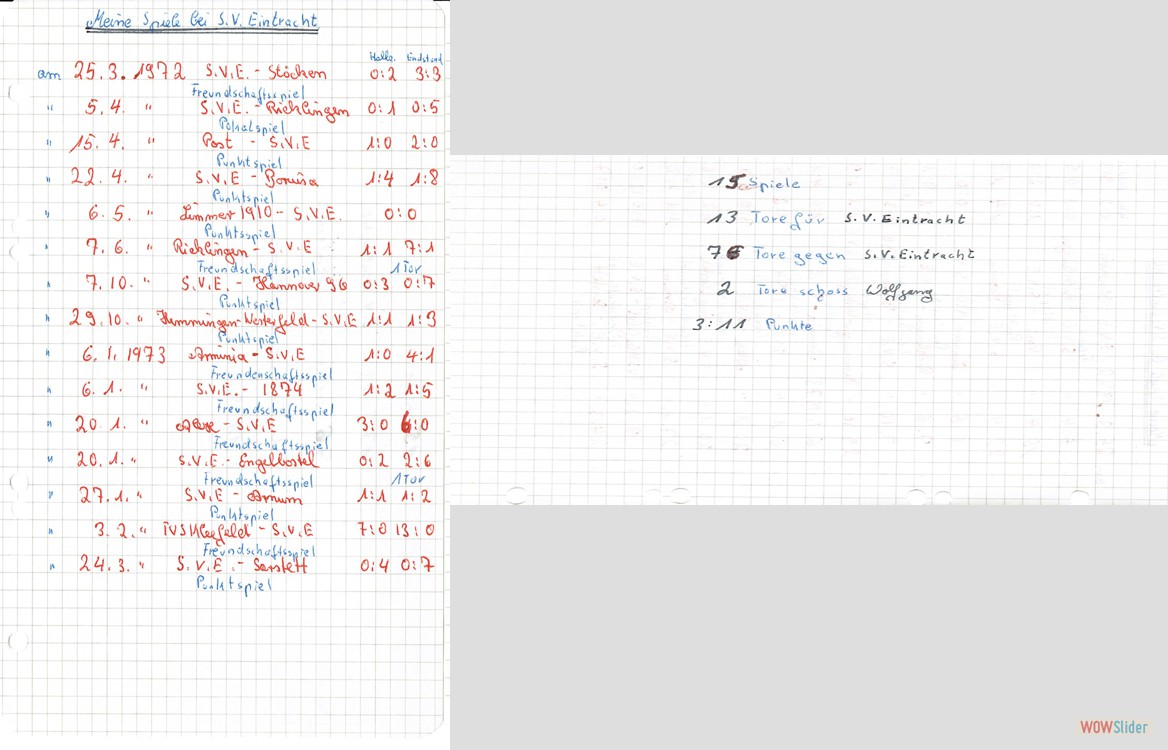 Meine Spiele bei S.V. Eintracht
Halbz. Endstand
am 25.3.1972 S.V.E. - Stöcken 0:2 3:3
Freundschaftsspiel
" 5.4. " S.V.E. - Ricklingen 0:1 0:5
Pokalspiel
" 15.4. " Post - S.V.E 1:0 2:0
Punktspiel
" 22.4. " S.V.E - Borusia 1:4 1:8
Punktspiel
" 6.5. " Limmer 1910 - S.V.E. 0:0
Punktsspiel
" 7.6. " Ricklingen - S.V.E : 1:1 7:1
Freundschaftsspiel 1 Tor
" 7.10. " S.V.E. - Hannover 96 0:3 0:7
Punktspiel
" 29.10. " Hemmingen-Westerfeld - S.V.E 1:1 1:3
Punktspiel
" 6.1.1973 Arminia - S.V.E 1:0 4:1
Freundenschaftsspiel
" 6.1. " S.V.E. - 1874 1:2 1:5
Freundschaftsspiel
" 20.1. " - S.V.E 3:0 6:0
Freundschaftsspiel
" 20.1. " S.V.E. - Engelbostel 0:2 2:6
Freundschaftsspiel 1 Tor
" 27.1. " S.V.E - Arnum 1:1 1:2
Punktspiel
" 3.2. " TVS Kleefeld - S.V.E 7:0 13:0
Freundschaftsspiel
" 24.3. " S.V.E. - Sarstett 0:4 0:7
Punktspiel
15 Spiele
13 Tore für S.V. Eintracht
76 Tore gegen S.V. Eintracht
2 Tore schoss Wolfgang
3:11 Punkte
WOWSlider